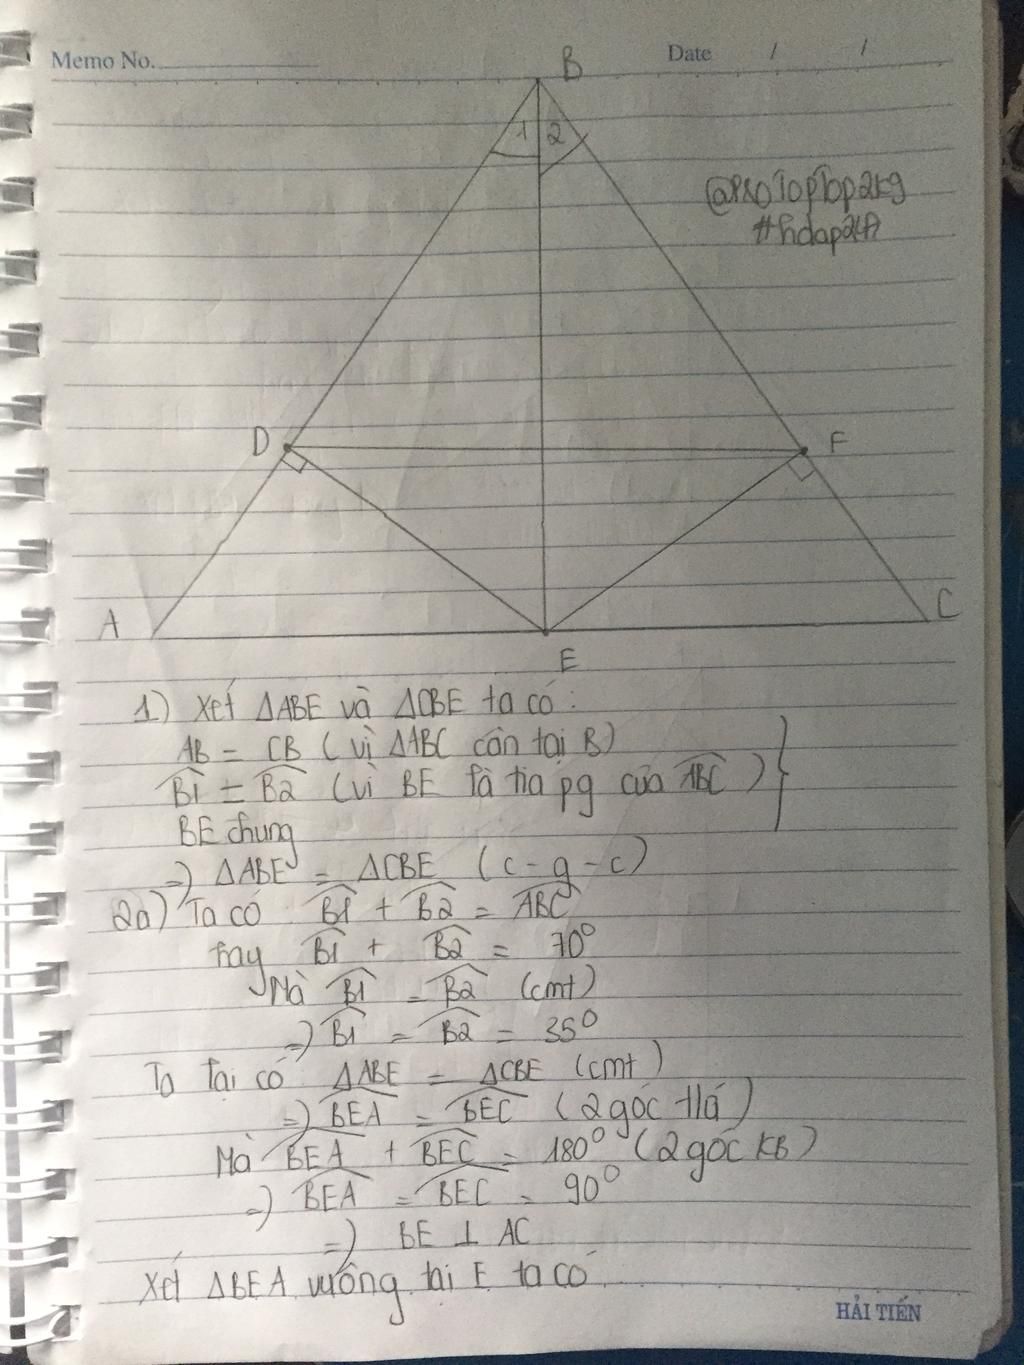 Memo No.
Date / /
B
1 2
#hdap247
D
F
A
C
E
1) Xét ΔABE và ΔCBE ta có:
AB = CB (vì ΔABC cân tại B)
B1 = B2 (vì BE là tia pg của ABC)
BE chung
=) ΔABE = ΔCBE (c-g-c)
2a) Ta có B1 + B2 = ABC
hay B1 + B2 = 70°
Mà B1 = B2 (cmt)
=) B1 = B2 = 35°
Ta lại có ΔABE = ΔCBE (cmt)
=) BEA = BEC (2 góc tứ)
Mà BEA + BEC = 180° (2 góc KB)
=) BEA = BEC = 90°
=) BE ⊥ AC
Xét ΔBEA vuông tại E ta có
HẢI TIẾN